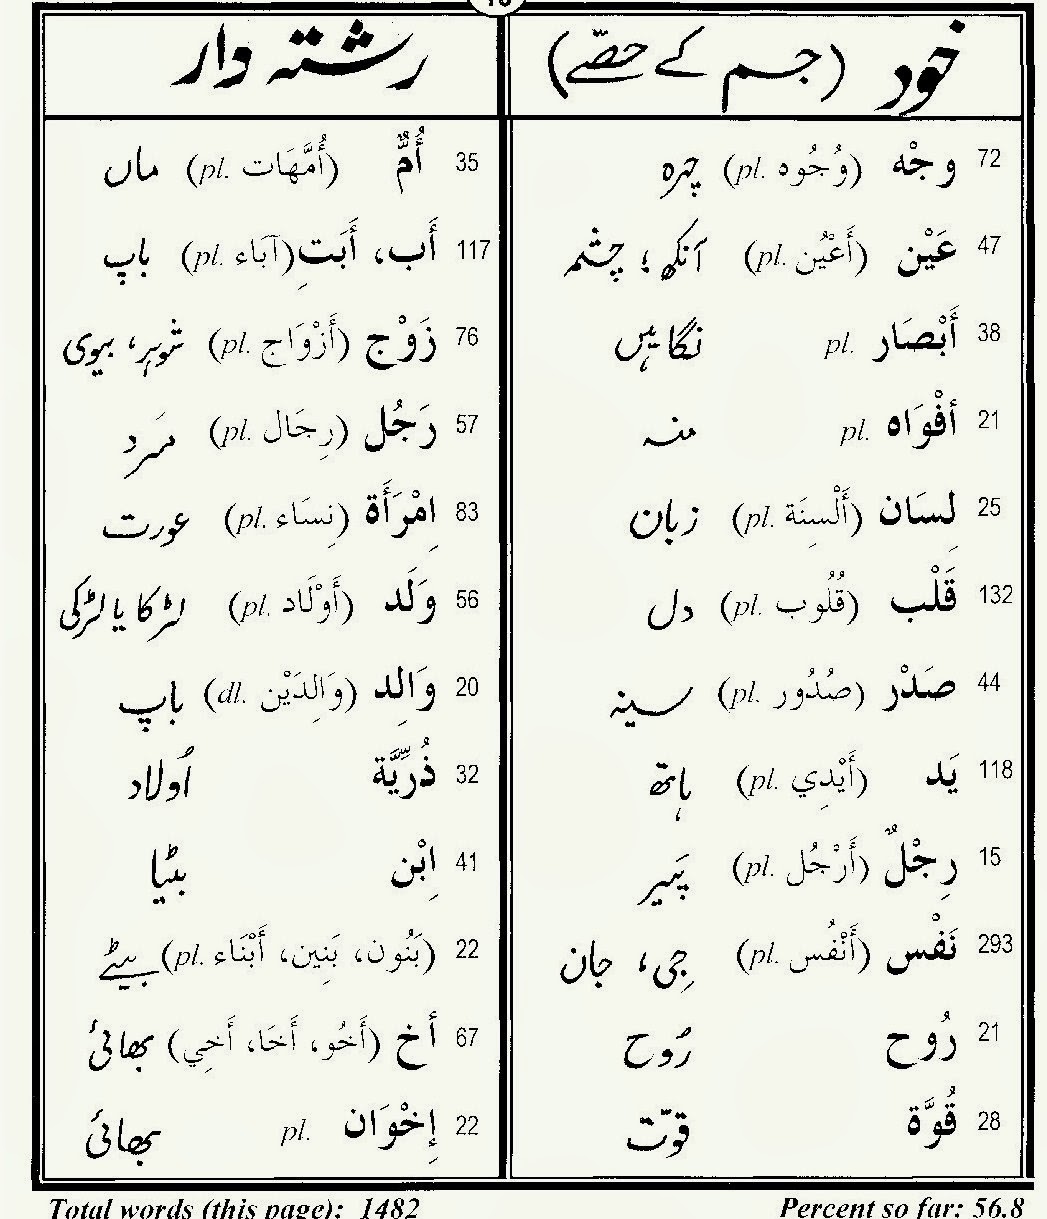 خود (جسم کے حصّے)
72 وجْه (وُجُوه pl.) چہرہ
47 عَيْن (أَعْيُن pl.) آنکھ؛ چشمہ
38 أَبْصَار pl. نگاہیں
21 أفْوَاه pl. منہ
25 لِسَان (أَلْسِنَة pl.) زبان
132 قَلْب (قُلُوب pl.) دل
44 صَدْر (صُدُور pl.) سینہ
118 يَد (أَيْدِي pl.) ہاتھ
15 رِجْلٌ (أَرْجُل pl.) پَیر
293 نَفْس (أَنْفُس pl.) جِی، جان
21 رُوح رُوح
28 قُوَّة قوّت
رشتہ دار
35 أُمٌّ (أُمَّهَات pl.) ماں
117 أَب، أَبَتِ (آبَاء pl.) باپ
76 زَوْج (أَزْوَاج pl.) شوہر، بیوی
57 رَجُل (رِجَال pl.) مَرد
83 امْرَأَة (نِسَاء pl.) عورت
56 وَلَد (أَوْلَاد pl.) لڑکا یا لڑکی
20 وَالِد (وَالِدَيْن dl.) باپ
32 ذُرِّيَّة اَولاد
41 اِبْن بیٹا
22 (بَنُون، بَنِين، أَبْنَاء pl.) بیٹے
67 أخ (أَخُو، أَخَا، أَخِي) بھائی
22 إِخْوَان pl. بھائی
Total words (this page): 1482
Percent so far: 56.8